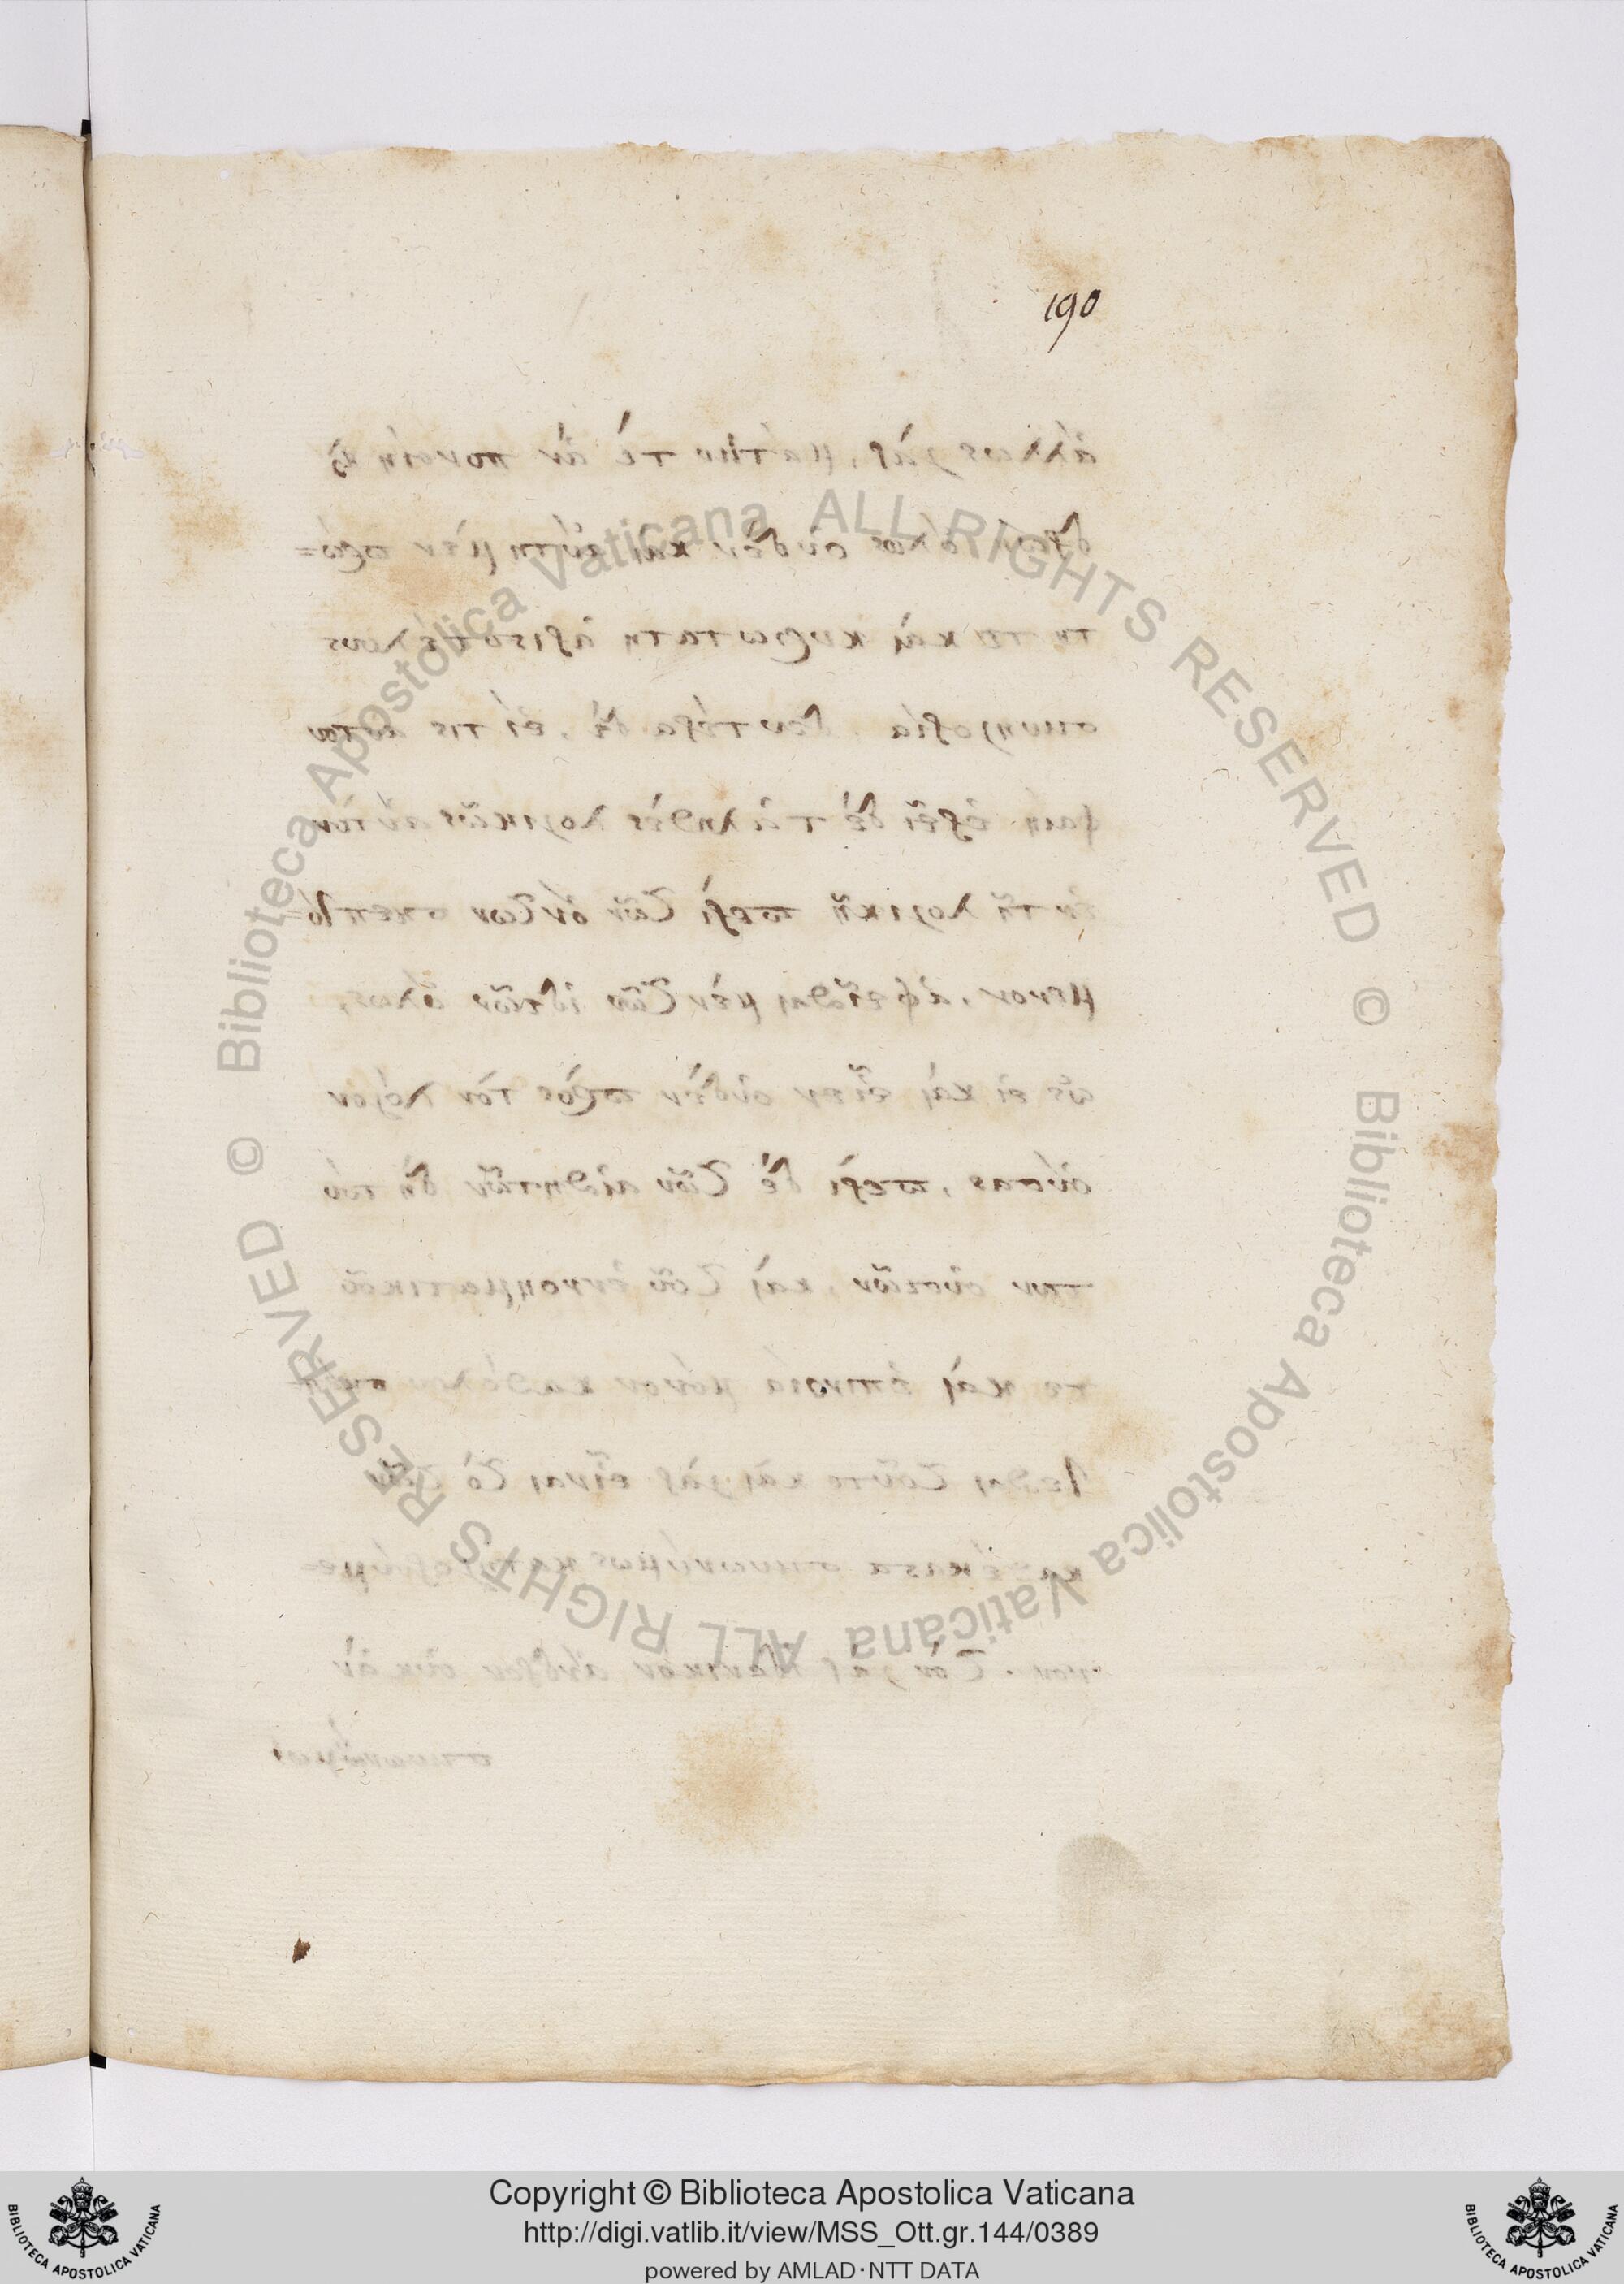 190
ἄλλως γὰρ, μάτην τὲ ἂν πονοίη καὶ
ὅλως οὐδέν καὶ αὕτη μὲν πρώ=
τη τε καὶ κυριωτατη ἀριστοτέλους
συνηγορία δευτέρα δὴ, εἴ τις αὐτὸν
φαίη ἐρεῖ δέ τἀληθὲς λογικῶς αὐτὸν
ἐν τῆ λογικῆ περὶ τῶν ὄντων σκεπτό=
μενον, ἀφεῖσθαι μὲν τῶν ἰδεῶν ὅλως,
ὡς εἰ καὶ εἶεν οὐδὲν πρὸς τὸν λόγον
οὔσας, περὶ δὲ τῶν αἰσθητῶν δὴ τού
των οὐσιῶν, καὶ τοῦ ἐννοηματικοῦ
τε καὶ ἐπινοία μόνον καθόλου
τοῦτο καὶ γὰρ εἶναι τὸ τῶν
καθέκαστα συνωνύμως κατηγορούμε=
νον. τὸν γὰρ οὐκ ἂν
συνωνύμως
Copyright © Biblioteca Apostolica Vaticana
http://digi.vatlib.it/view/MSS_Ott.gr.144/0389
powered by AMLAD·NTT DATA
BIBLIOTECA APOSTOLICA VATICANA
BIBLIOTECA APOSTOLICA VATICANA
© Biblioteca Apostolica Vaticana ALL RIGHTS RESERVED
© Biblioteca Apostolica Vaticana ALL RIGHTS RESERVED